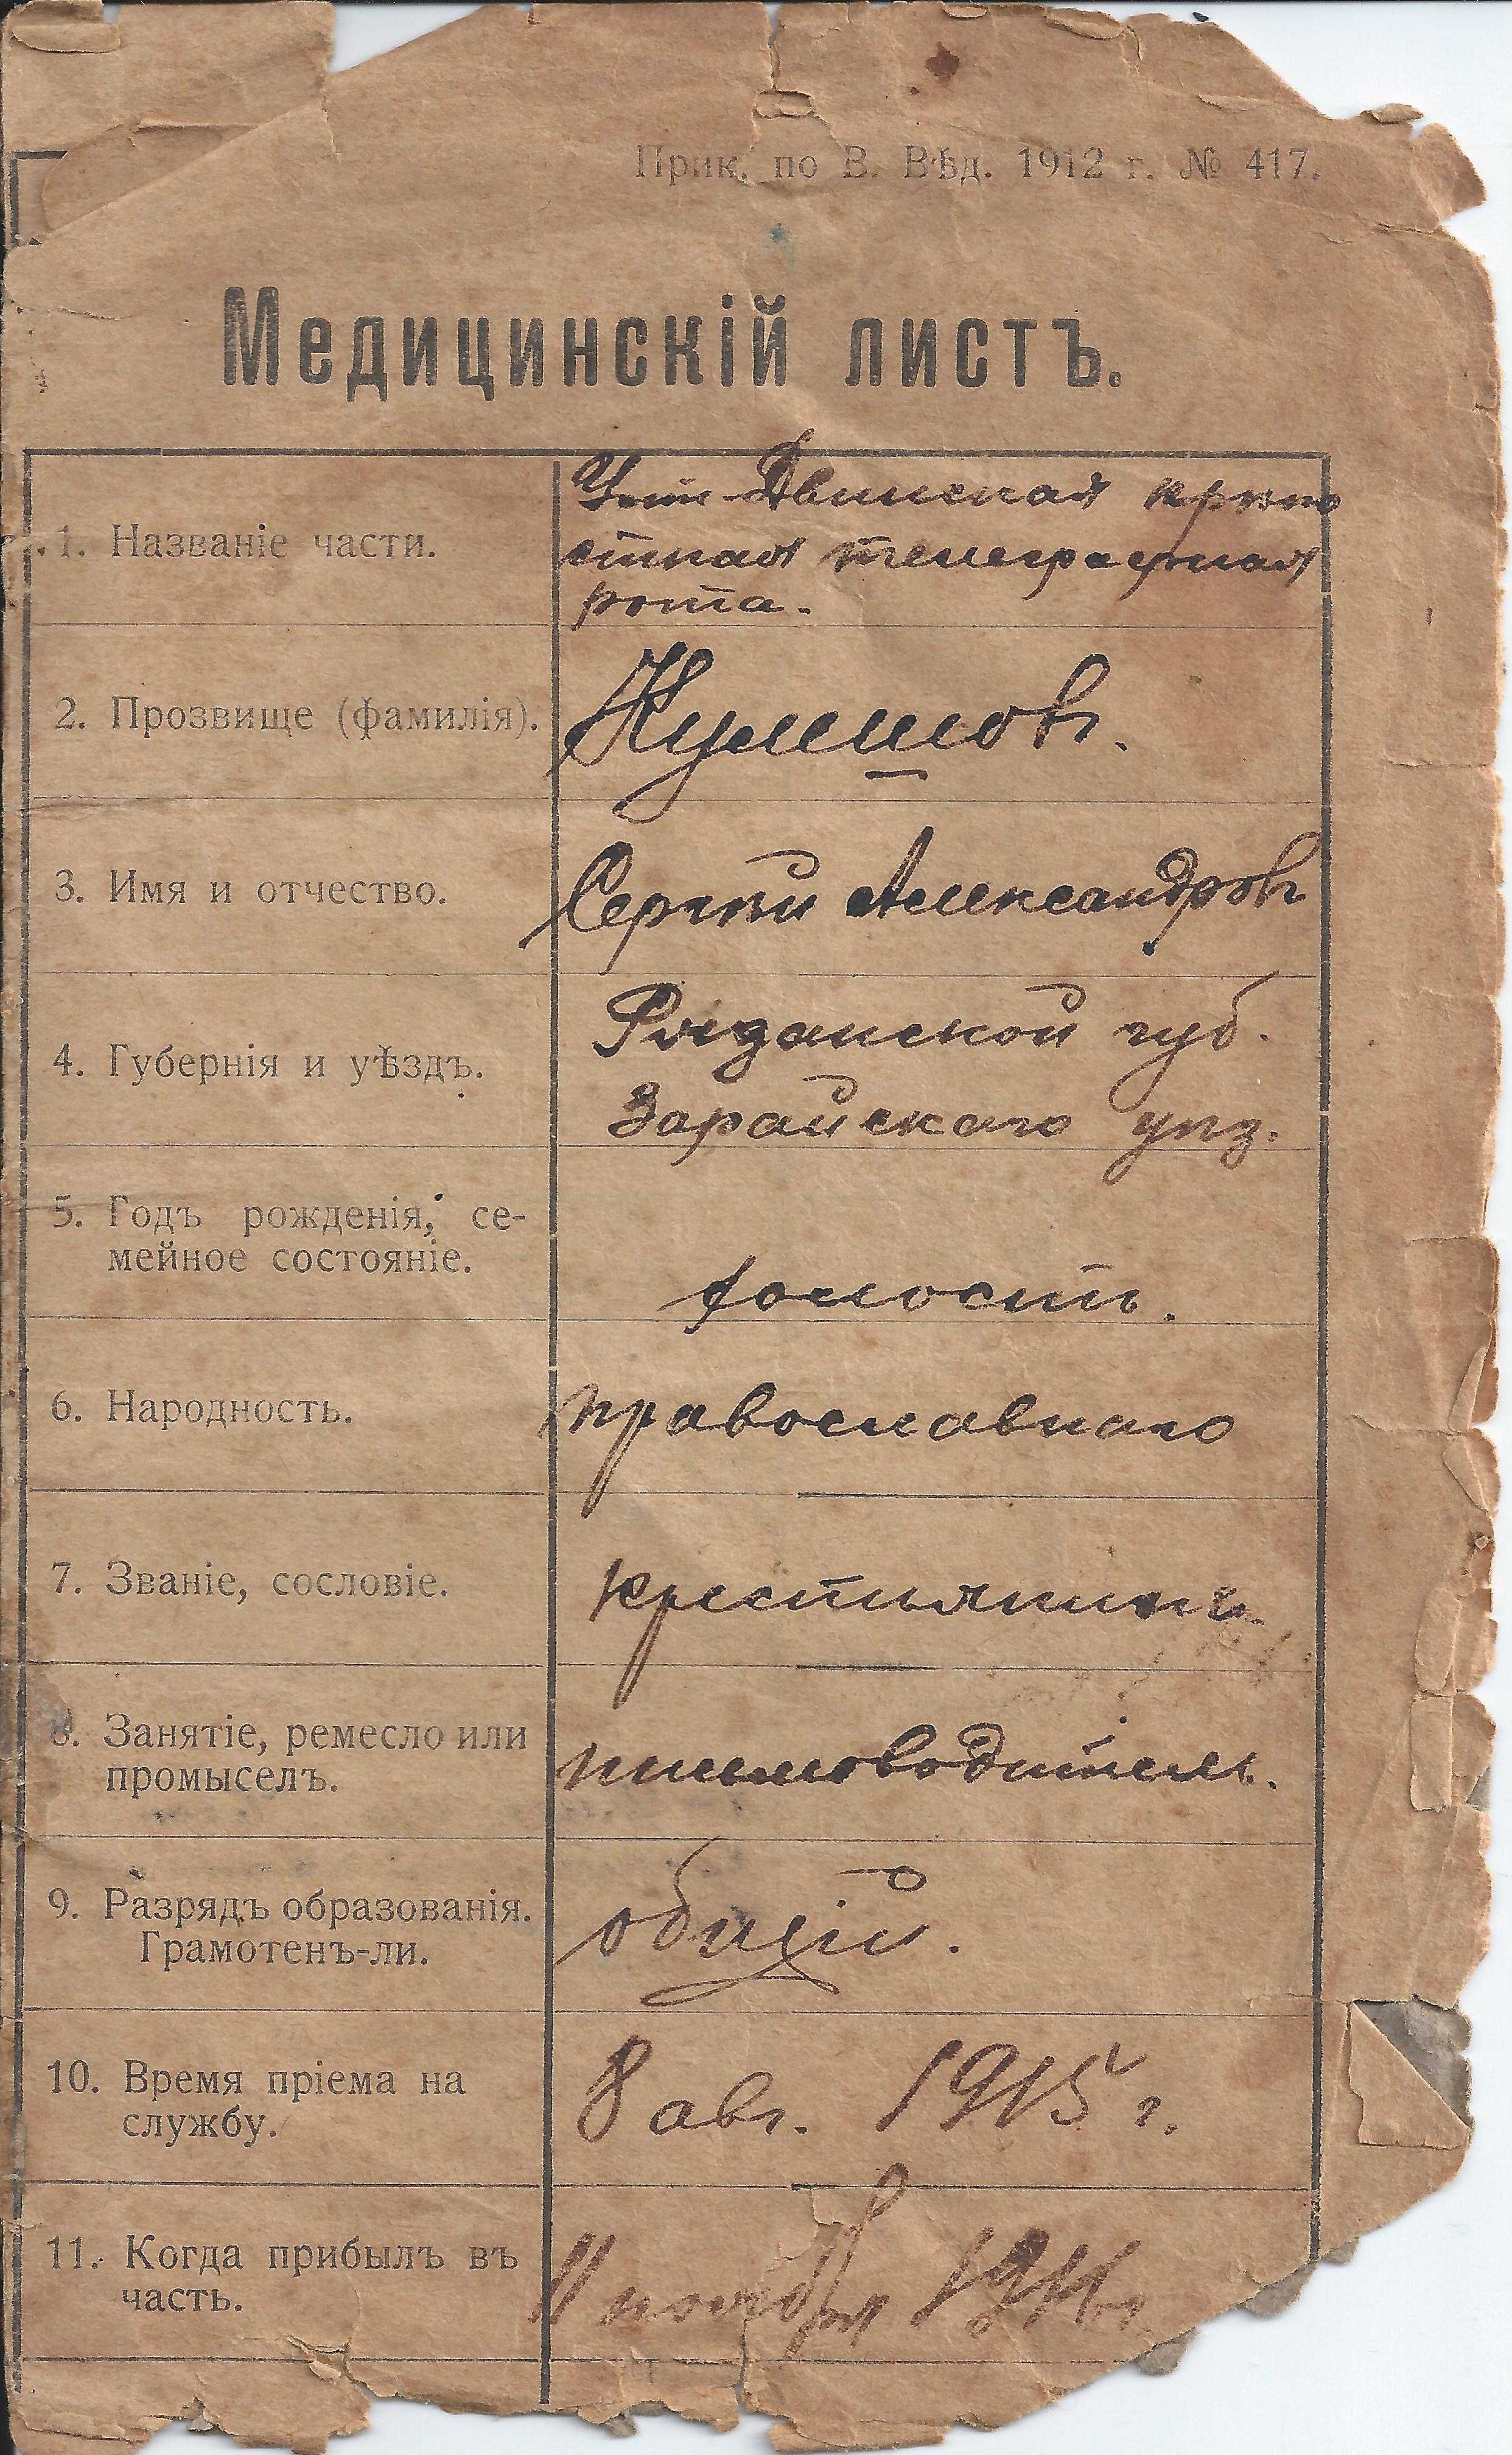 Прик. по В. Вѣд. 1912 г. № 417.
Медицинскій листъ.
1. Названіе части.
Усть-Двинская крѣпо
стная телеграфная
рота.
2. Прозвище (фамилія).
3. Имя и отчество.
Сергѣй Александровъ
4. Губернія и уѣздъ.
Рязанской губ.
Зарайскаго уѣз.
5. Годъ рожденія, се-
мейное состояніе.
холостъ.
6. Народность.
православнаго
7. Званіе, сословіе.
крестьянинъ
8. Занятіе, ремесло или
промыселъ.
письмоводитель.
9. Разрядъ образованія.
Грамотенъ-ли.
общій.
10. Время пріема на
службу.
8 авг. 1915 г.
11. Когда прибылъ въ
часть.
11 ноября 1916г.